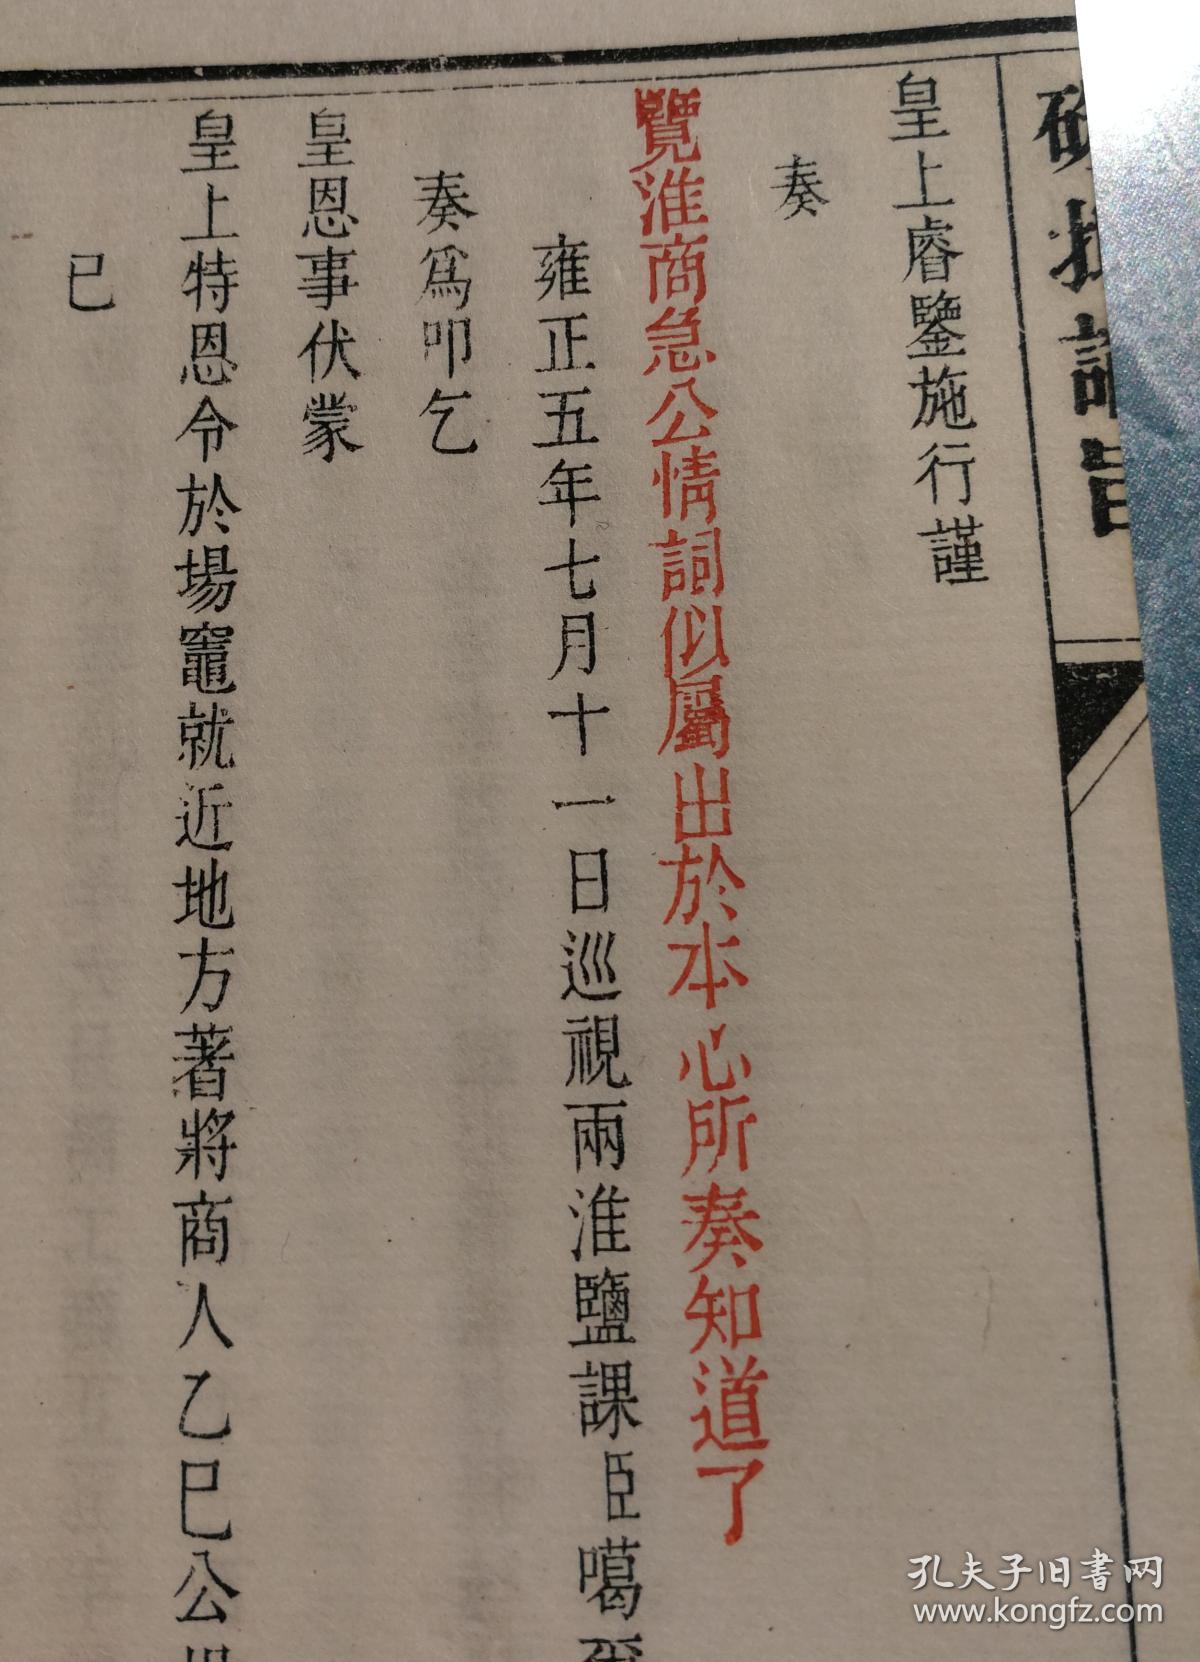 硃批諭旨
皇上睿鑒施行謹
奏
覽淮商急公情詞似屬出於本心所奏知道了
雍正五年七月十一日巡視兩淮鹽課臣噶爾
奏爲叩乞
皇恩事伏蒙
皇上特恩令於場竈就近地方著將商人乙巳公
已
孔夫子旧书网
www.kongfz.com